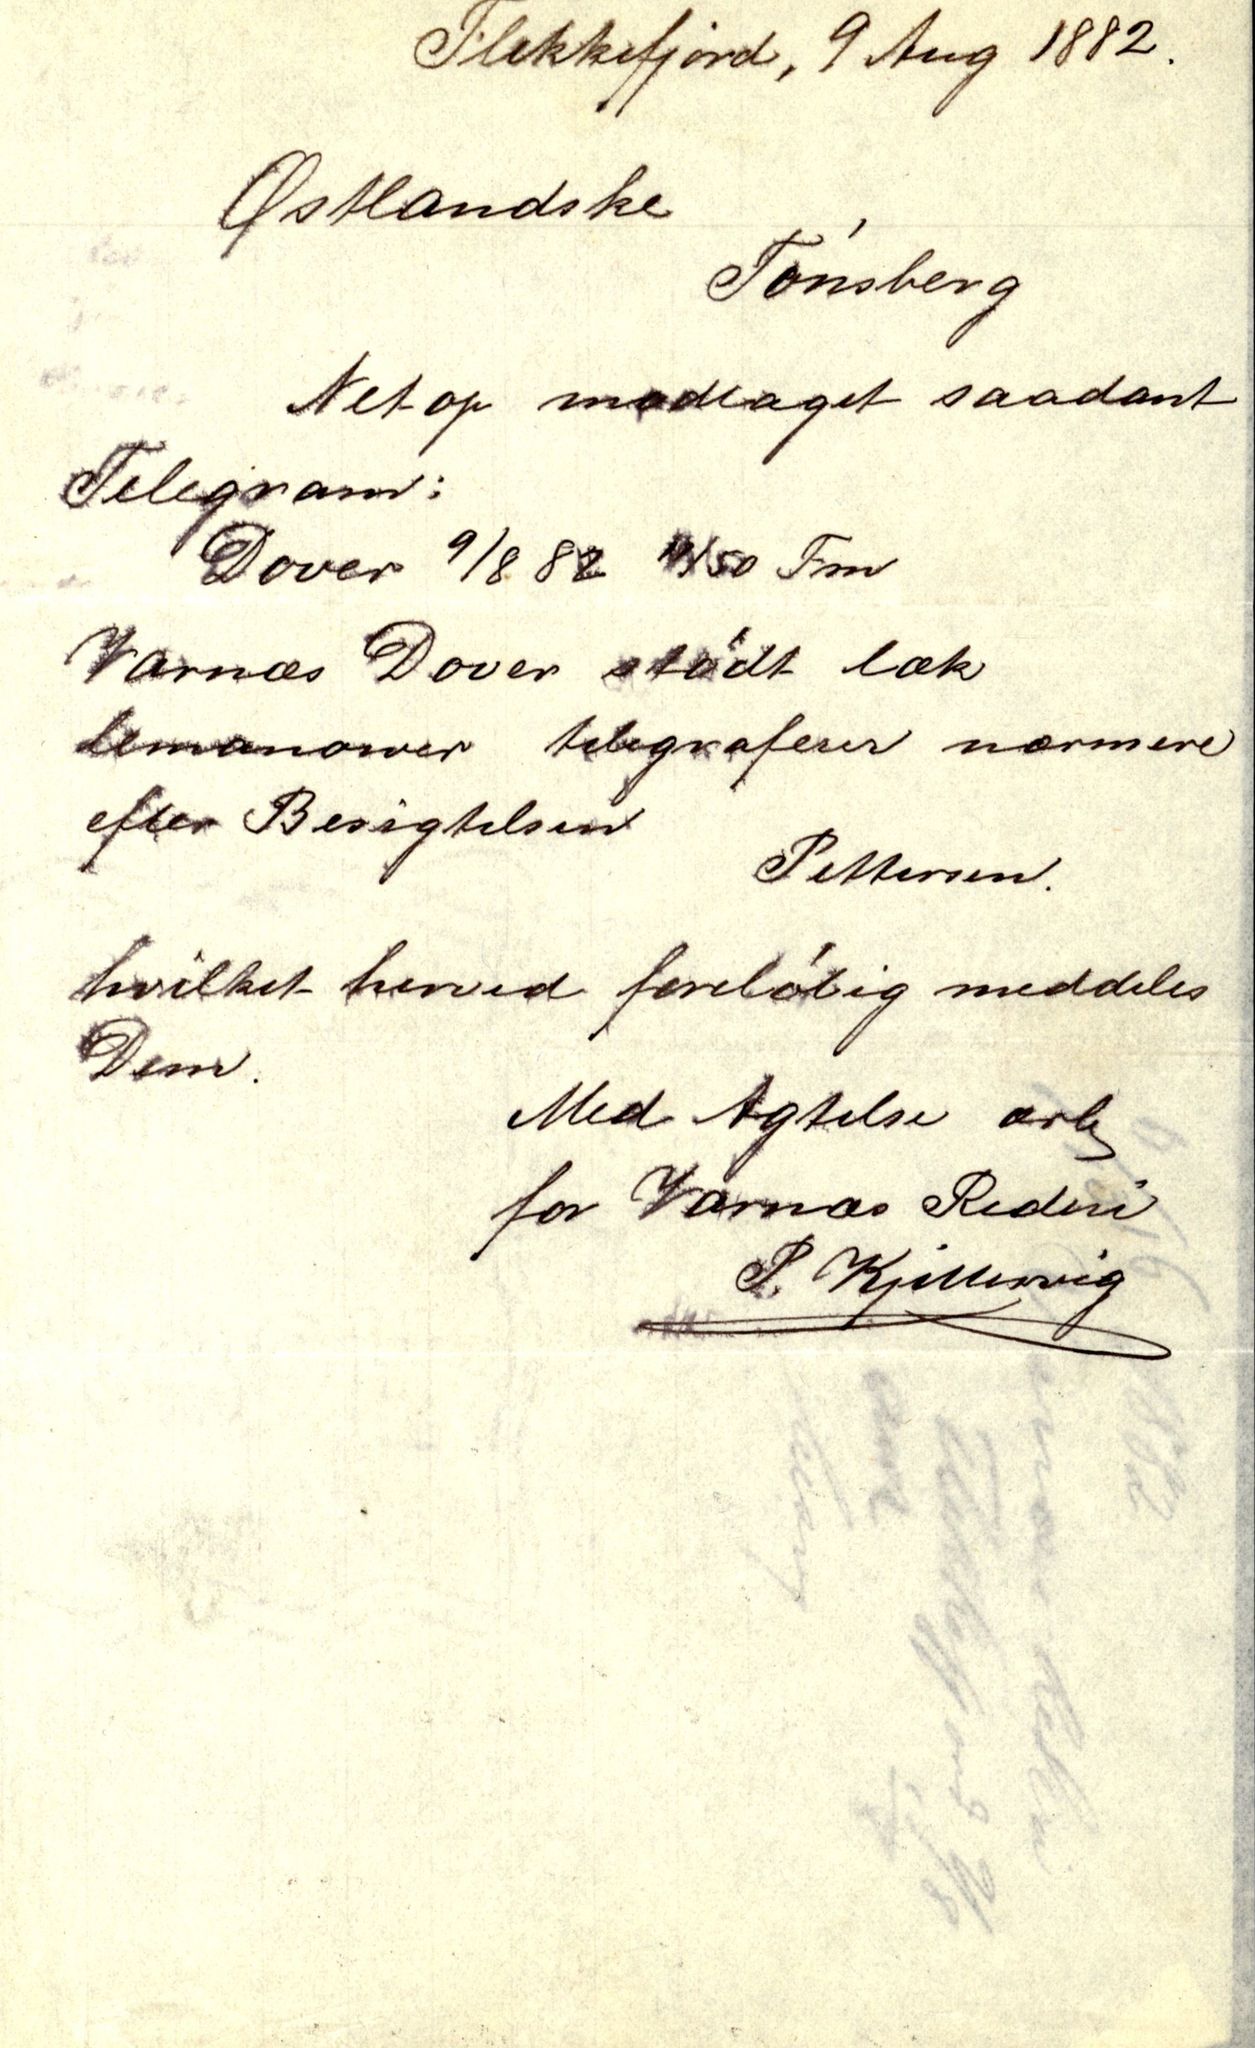 Flekkefjord, 9 Aug 1882.
Østlandske
Tónsberg
Netop modtaget saadant
Telegram:
Dover 9/8 82 11/50 Fm
Varnæs Dover stódt læk
lemanower telegraferer nærmere
efter Besigtelsen
Pettersen.
hvilket herved forelóbig meddeles
Dem.
Med Agtelse ærb
for Varnæs Rederi
P. Kjellervig